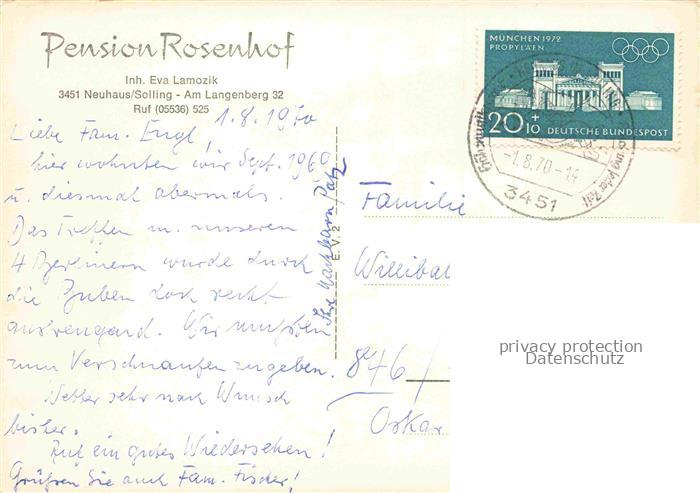 Pension Rosenhof
Inh. Eva Lamozik
3451 Neuhaus/Solling - Am Langenberg 32
Ruf (05536) 525
1.8.1970
Liebe Fam. Engl,
hier wohnten wir Sept. 1969
u. diesmal abermals.
Das Treffen m. unseren
4 Berlinern wurde durch
die Buben doch recht
anstrengend. Wir mußten
zum Verschnaufen zugeben.
Wetter sehr nach Wunsch
bisher.
Auf ein gutes Wiedersehen!
Grüßen Sie auch Fam. Fischer!
Ihre Nachbarn Patz
E. V. 2
MÜNCHEN 1972
PROPYLÄEN
20+10 DEUTSCHE BUNDESPOST
-1.8.70-14
3451
Familie
Williba
846
Oskar
privacy protection
Datenschutz